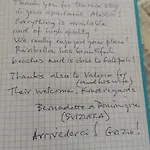 Thank you for these stay
in your apartment, Alessio!
Everything is available
and of high quality.
We really enjoyed your place!
Portobello has beautiful
beaches and is close to
Thanks also to Valeria for
their welcome. Kind regards
Bernadette & Dominique
(SVIZZERA)
Arrivederci! Grazie!